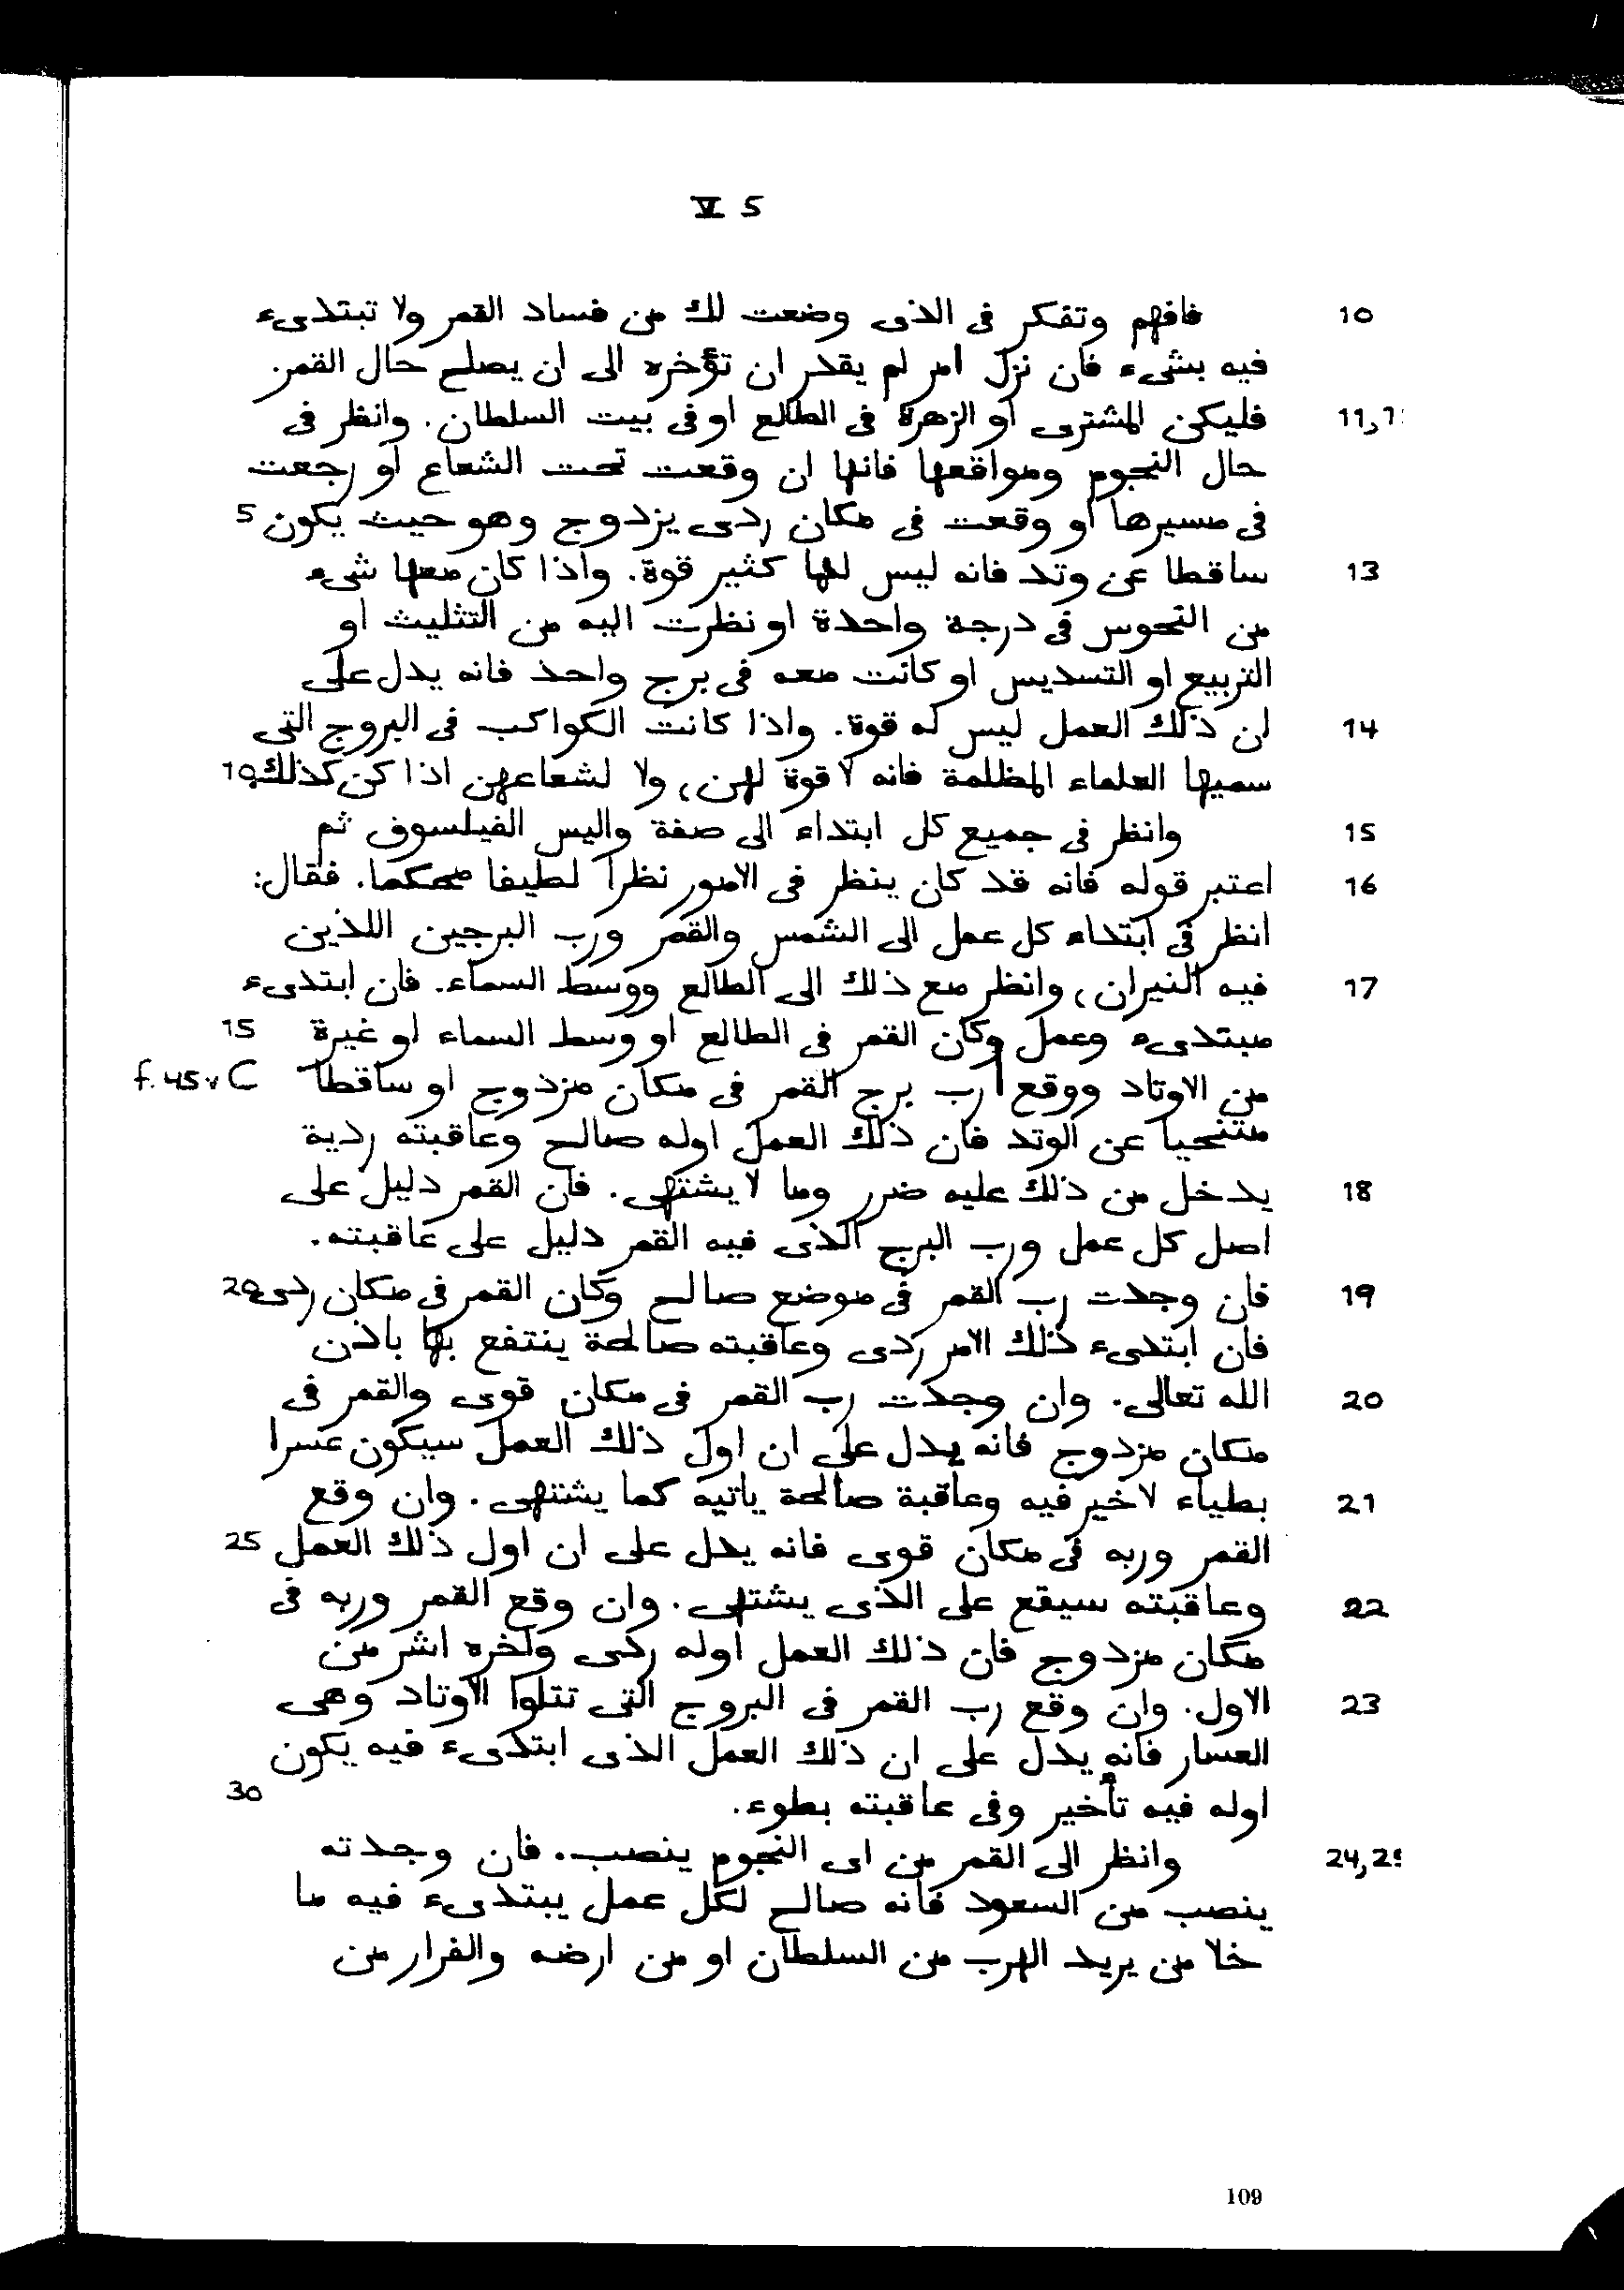 V 5
10 فافهم وتفكر فى الذى وضعت لك من فساد القمر ولا تبتدىء
فيه بشىء فان نزل امر لم يقدر ان تؤخره الى ان يصلح حال القمر.
11, فليكن المشترى او الزهرة فى الطالع او فى بيت السلطان. وانظر فى
حال النجوم ومواقعها فانها ان وقعت تحت الشعاع او رجعت
فى مسيرها او وقعت فى مكان ردى يزدوج وهو حيث يكون 5
13 ساقطا عن وتد فانه ليس لها كثير قوة. واذا كان معها شىء
من النحوس فى درجة واحدة او نظرت اليه من التثليث او
التربيع او التسديس او كانت معه فى برج واحد فانه يدل على
14 ان ذلك العمل ليس له قوة. واذا كانت الكواكب فى البروج التى
سميها العلماء المظلمة فانه لا قوة لهن، ولا لشعاعهن اذا كن كذلك. 10
15 وانظر فى جميع كل ابتداء الى صفة واليس الفيلسوف ثم
16 اعتبر قوله فانه قد كان ينظر فى الامور نظرا لطيفا محكما. فقال:
انظر فى ابتداء كل عمل الى الشمس والقمر ورب البرجين اللذين
17 فيه النيران، وانظر مع ذلك الى الطالع ووسط السماء. فان ابتدىء
مبتدىء وعمل وكان القمر فى الطالع او وسط السماء او غيرة 15
من الاوتاد ووقع | رب برج القمر فى مكان مزدوج او ساقطا f. 45v C
متنحيا عن الوتد فان ذلك العمل اوله صالح وعاقبته ردية
18 يدخل من ذلك عليه ضرر وما لا يشتهى. فان القمر دليل على
اصل كل عمل ورب البرج الذى فيه القمر دليل على عاقبته.
19 فان وجدت رب القمر فى موضع صالح وكان القمر فى مكان ردى 20
فان ابتدىء ذلك الامر ردى وعاقبته صالحة ينتفع بها باذن
20 الله تعالى. وان وجدت رب القمر فى مكان قوى والقمر فى
مكان مزدوج فانه يدل على ان اول ذلك العمل سيكون عسرا
21 بطياء لا خير فيه وعاقبة صالحة ياتيه كما يشتهى. وان وقع
القمر وربه فى مكان قوى فانه يدل على ان اول ذلك العمل 25
22 وعاقبته سيقع على الذى يشتهى. وان وقع القمر وربه فى
مكان مزدوج فان ذلك العمل اوله ردى واخره اشر من
23 الاول. وان وقع رب القمر فى البروج التى تتلوا الاوتاد وهى
العسار فانه يدل على ان ذلك العمل الذى ابتدىء فيه يكون
اوله فيه تأخير وفى عاقبته بطوء. 30
24, وانظر الى القمر من اى النجوم ينصب. فان وجدته
ينصب من السعود فانه صالح لكل عمل يبتدىء فيه ما
خلا من يريد الهرب من السلطان او من ارضه والفرار من
109